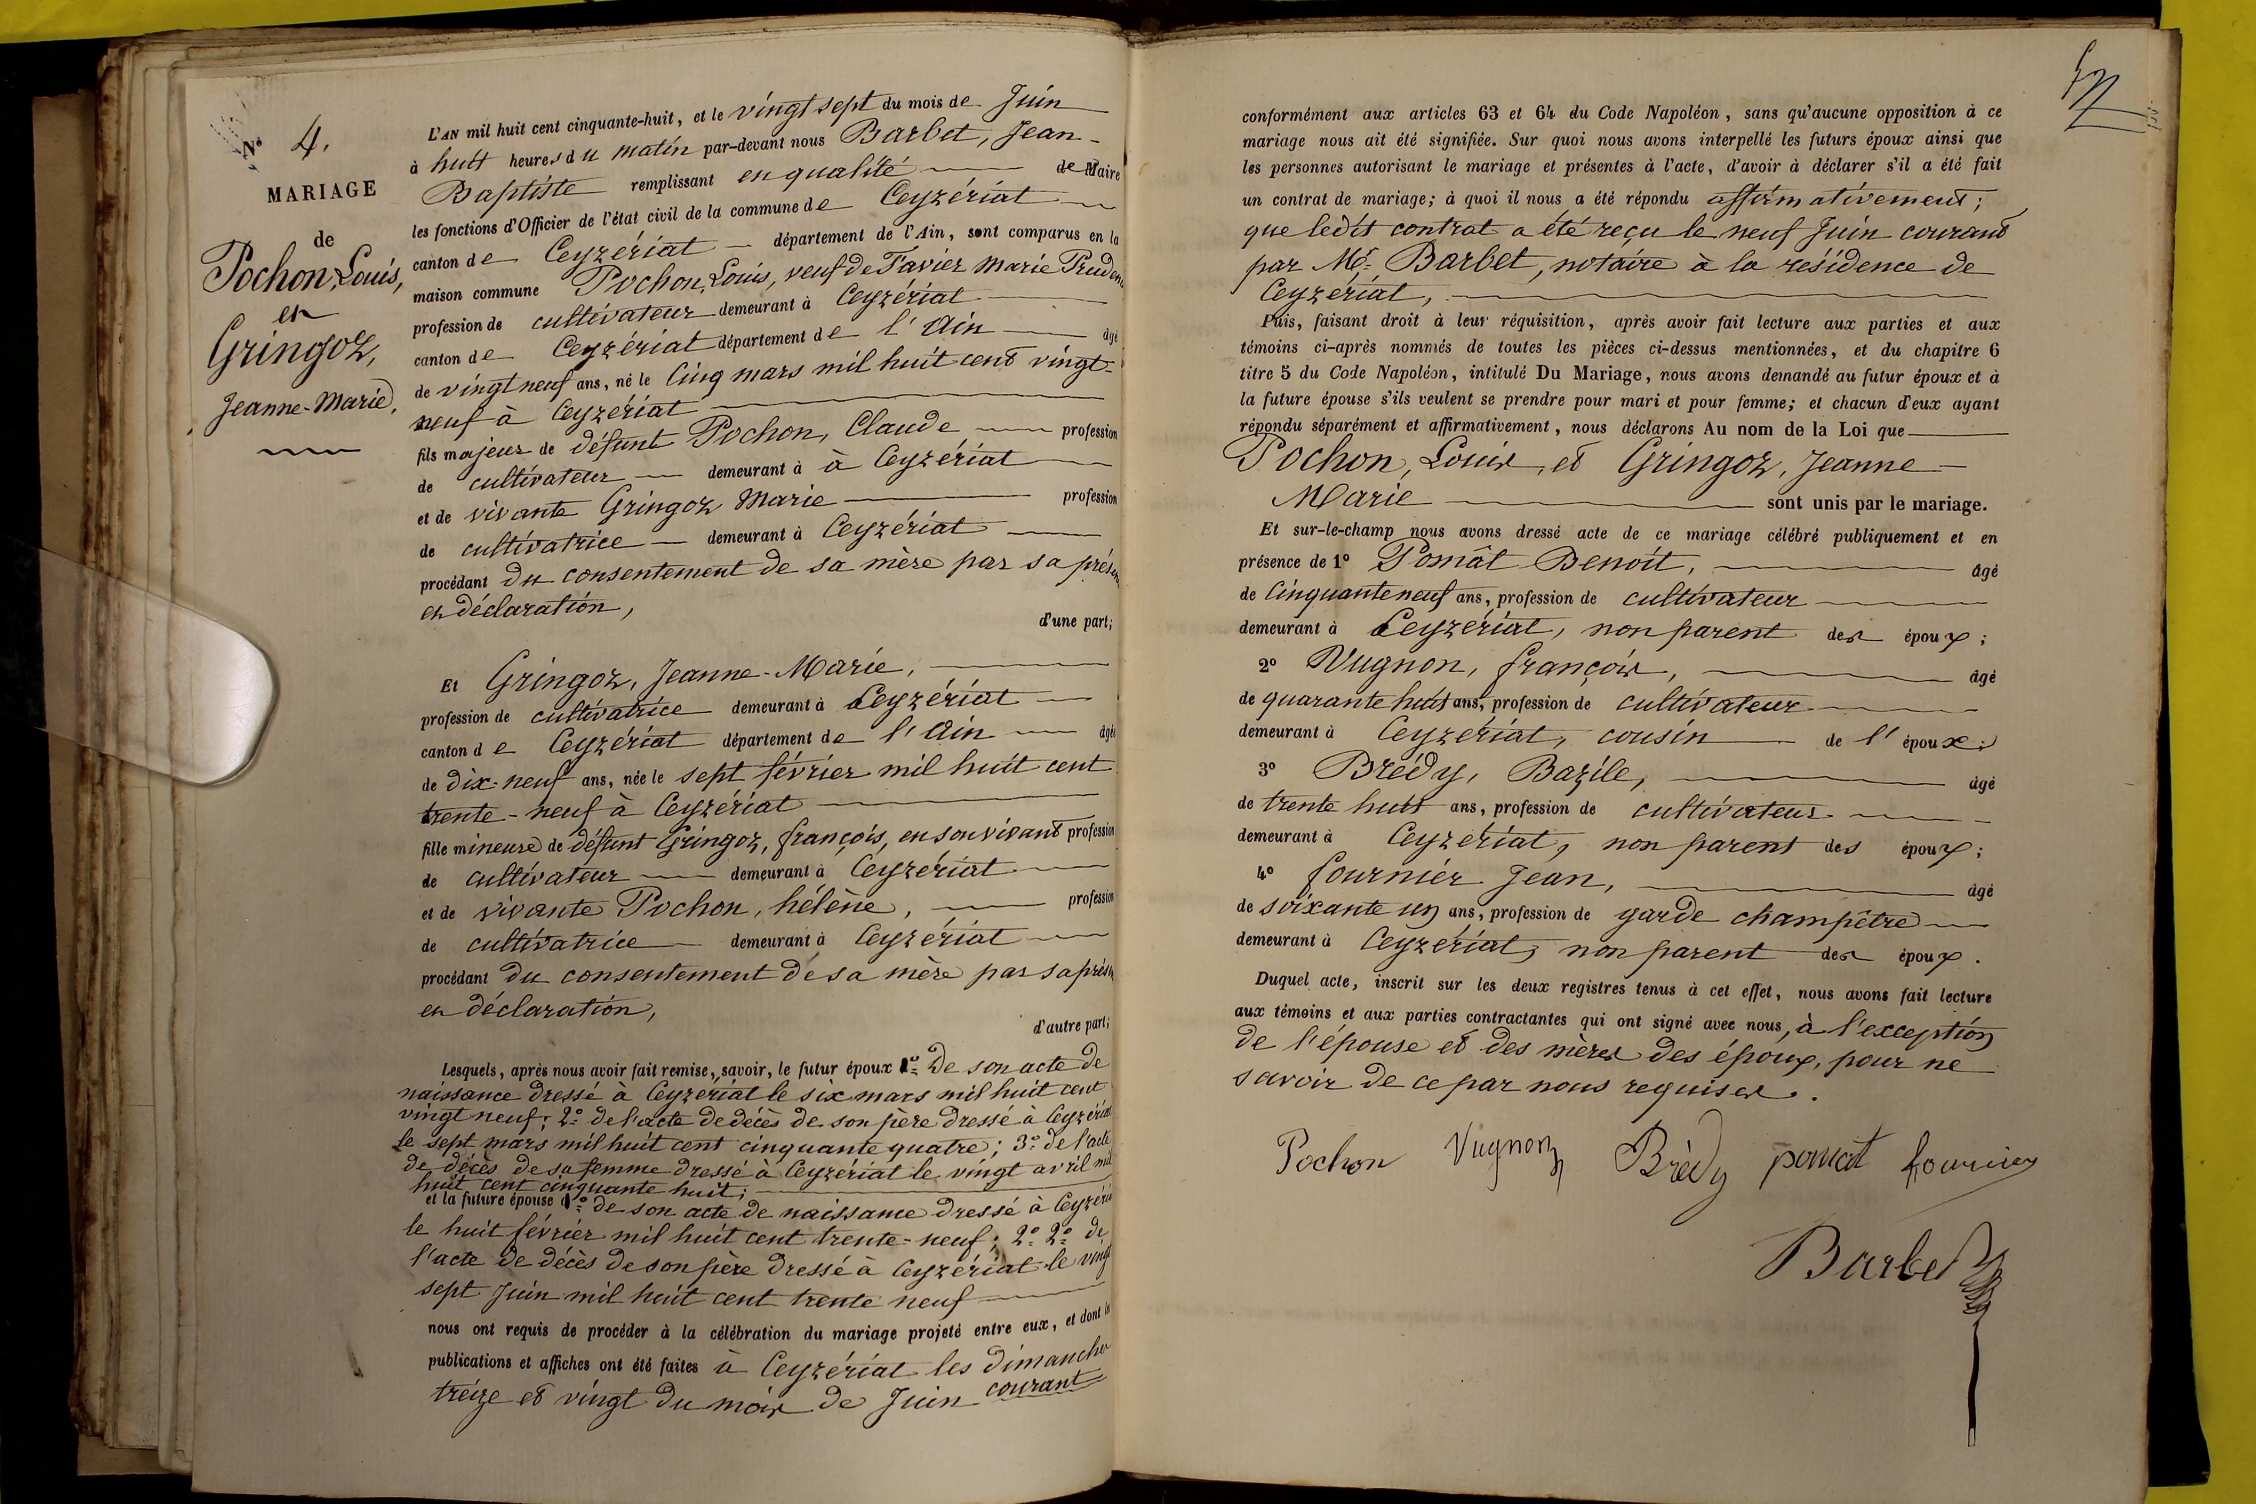 N° 4.
MARIAGE
de
Pochon, Louis,
et
Gringoz,
Jeanne-Marie.
L'AN mil huit cent cinquante-huit, et le vingt sept du mois de Juin
à huit heures du matin par-devant nous Barbet, Jean-
Baptiste remplissant en qualité de Maire
les fonctions d'Officier de l'état civil de la commune de Ceyzériat
canton de Ceyzériat département de l'Ain, sont comparus en la
maison commune Pochon, Louis, veuf de Favier Marie Pruden
profession de cultivateur demeurant à Ceyzériat
canton de Ceyzériat département de l'Ain âgé
de vingt neuf ans, né le Cinq mars mil huit cent vingt-
neuf à Ceyzériat
fils majeur de défunt Pochon, Claude profession
de cultivateur demeurant à à Ceyzériat
et de vivante Gringoz Marie profession
de cultivatrice demeurant à Ceyzériat
procédant du consentement de sa mère par sa présen
et déclaration,
d'une part;
Et Gringoz, Jeanne-Marie,
profession de cultivatrice demeurant à Ceyzériat
canton de Ceyzériat département de l'Ain âgée
de dix-neuf ans, née le sept février mil huit cent
trente-neuf à Ceyzériat
fille mineure de défunt Gringoz, françois, en son vivant profession
de cultivateur demeurant à Ceyzériat
et de vivante Pochon, hélène, profession
de cultivatrice demeurant à Ceyzériat
procédant du consentement de sa mère par sa présen
et déclaration,
d'autre part;
Lesquels, après nous avoir fait remise, savoir, le futur époux 1° De son acte de
naissance dressé à Ceyzériat le six mars mil huit cent
vingt neuf; 2° de l'acte de décès de son père dressé à Ceyzériat
le sept mars mil huit cent cinquante quatre; 3° de l'acte
de décès de sa femme dressé à Ceyzériat le vingt avril mil
huit cent cinquante huit;
et la future épouse 1° de son acte de naissance dressé à Ceyzéri
le huit février mil huit cent trente-neuf; 2° 2° de
l'acte de décès de son père dressé à Ceyzériat le vingt
sept Juin mil huit cent trente neuf
nous ont requis de procéder à la célébration du mariage projeté entre eux, et dont les
publications et affiches ont été faites à Ceyzériat les dimanches
treize et vingt du mois de Juin courant
conformément aux articles 63 et 64 du Code Napoléon, sans qu'aucune opposition à ce
mariage nous ait été signifiée. Sur quoi nous avons interpellé les futurs époux ainsi que
les personnes autorisant le mariage et présentes à l'acte, d'avoir à déclarer s'il a été fait
un contrat de mariage; à quoi il nous a été répondu affirmativement;
que ledit contrat a été reçu le neuf Juin courant
par Me Barbet, notaire à la résidence de
Ceyzériat,
Puis, faisant droit à leur réquisition, après avoir fait lecture aux parties et aux
témoins ci-après nommés de toutes les pièces ci-dessus mentionnées, et du chapitre 6
titre 5 du Code Napoléon, intitulé Du Mariage, nous avons demandé au futur époux et à
la future épouse s'ils veulent se prendre pour mari et pour femme; et chacun d'eux ayant
répondu séparément et affirmativement, nous déclarons Au nom de la Loi que
Pochon, Louis, et Gringoz, Jeanne-
Marie sont unis par le mariage.
Et sur-le-champ nous avons dressé acte de ce mariage célébré publiquement et en
présence de 1° Pomât Benoit, âgé
de Cinquante neuf ans, profession de cultivateur
demeurant à Ceyzériat, non parent des époux;
2° Vugnon, françois, âgé
de quarante huit ans, profession de cultivateur
demeurant à Ceyzériat, cousin de l'époux;
3° Brédy, Bazile, âgé
de trente huit ans, profession de cultivateur
demeurant à Ceyzériat, non parent des époux;
4° fournier Jean, âgé
de soixante un ans, profession de garde champêtre
demeurant à Ceyzériat, non parent des époux.
Duquel acte, inscrit sur les deux registres tenus à cet effet, nous avons fait lecture
aux témoins et aux parties contractantes qui ont signé avec nous, à l'exception
de l'épouse et des mères des époux, pour ne
savoir de ce par nous requises.
Pochon Vugnon Brédy pomat fournier
Barbet